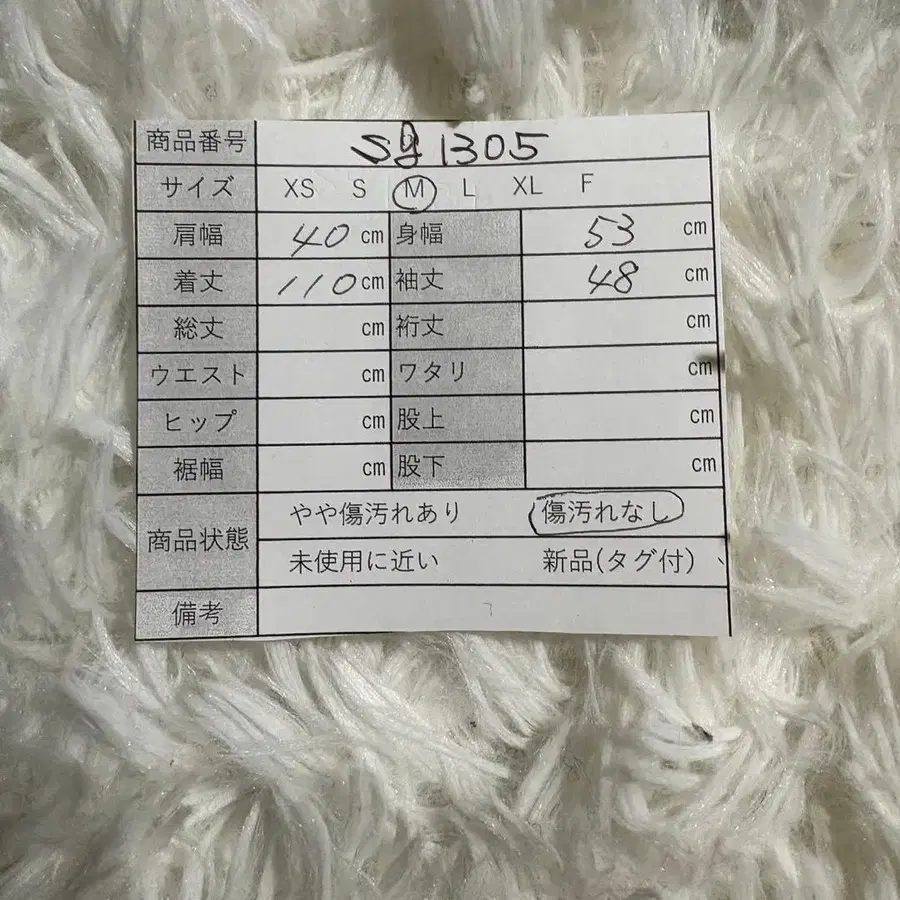 商品番号 Sg 1305
サイズ XS S M L XL F
肩幅 40 cm 身幅 53 cm
着丈 110 cm 袖丈 48 cm
総丈 cm 裄丈 cm
ウエスト cm ワタリ cm
ヒップ cm 股上 cm
裾幅 cm 股下 cm
商品状態 やや傷汚れあり 傷汚れなし
未使用に近い 新品(タグ付)
備考